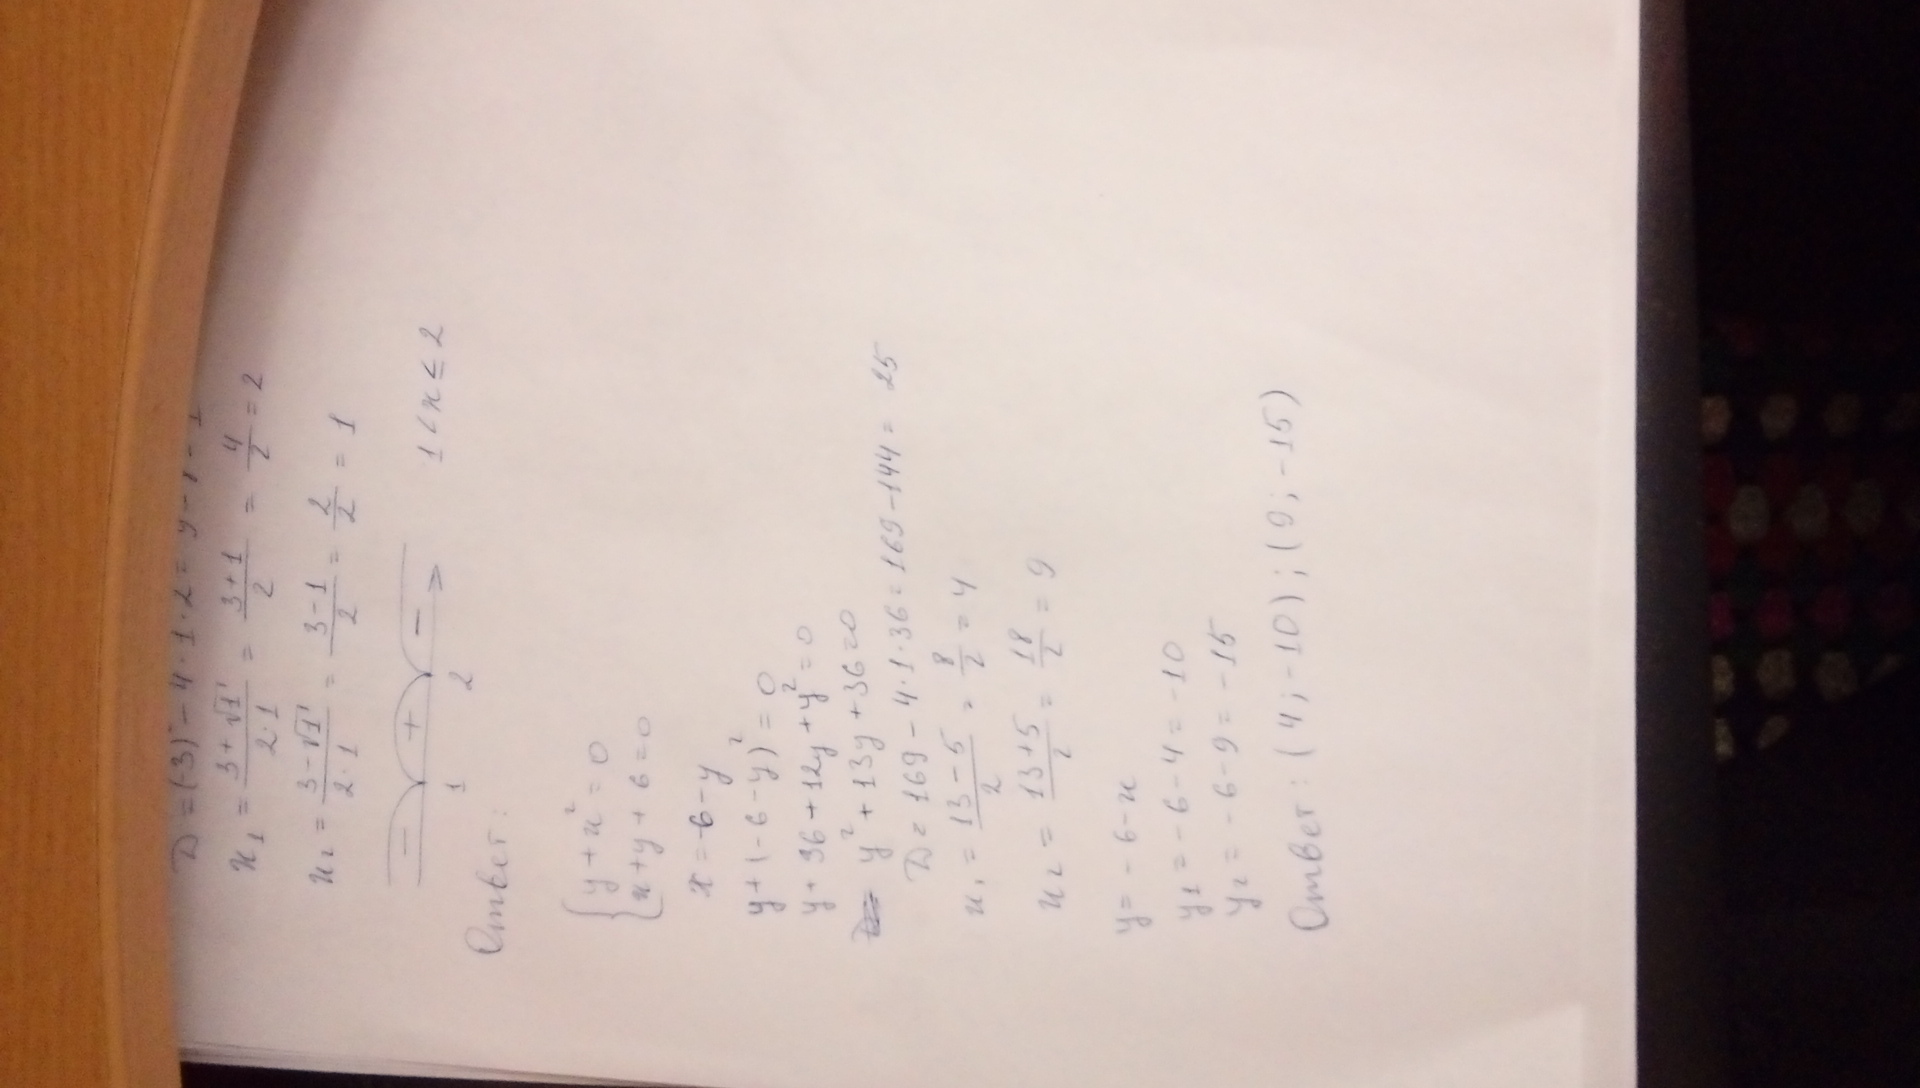 D = (-3)² - 4·1·2 = 9 - 8 = 1
x₁ = (3+√1)/(2·1) = (3+1)/2 = 4/2 = 2
x₂ = (3-√1)/(2·1) = (3-1)/2 = 2/2 = 1
- + -
1 2 1 < x ≤ 2
Ответ:
{ y + x² = 0
x + y + 6 = 0
x = -6 - y
y + (-6 - y)² = 0
y + 36 + 12y + y² = 0
y² + 13y + 36 = 0
D = 169 - 4·1·36 = 169 - 144 = 25
x₁ = (13-5)/2 = 8/2 = 4
x₂ = (13+5)/2 = 18/2 = 9
y = -6 - x
y₁ = -6 - 4 = -10
y₂ = -6 - 9 = -15
Ответ: (4; -10); (9; -15)